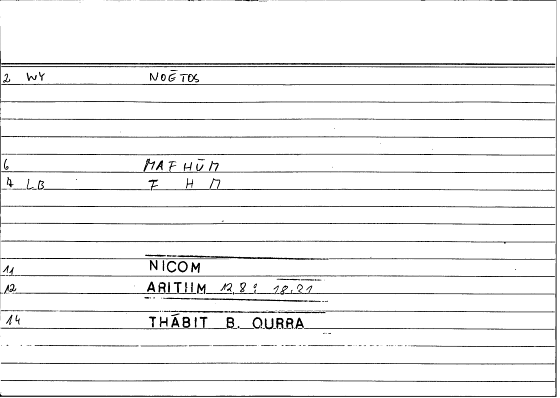 2 WY NOĒTOS
6 MAFHŪM
4 LB F H M
11 NICOM
12 ARITHM 12,8 : 18.21
14 THĀBIT B. QURRA